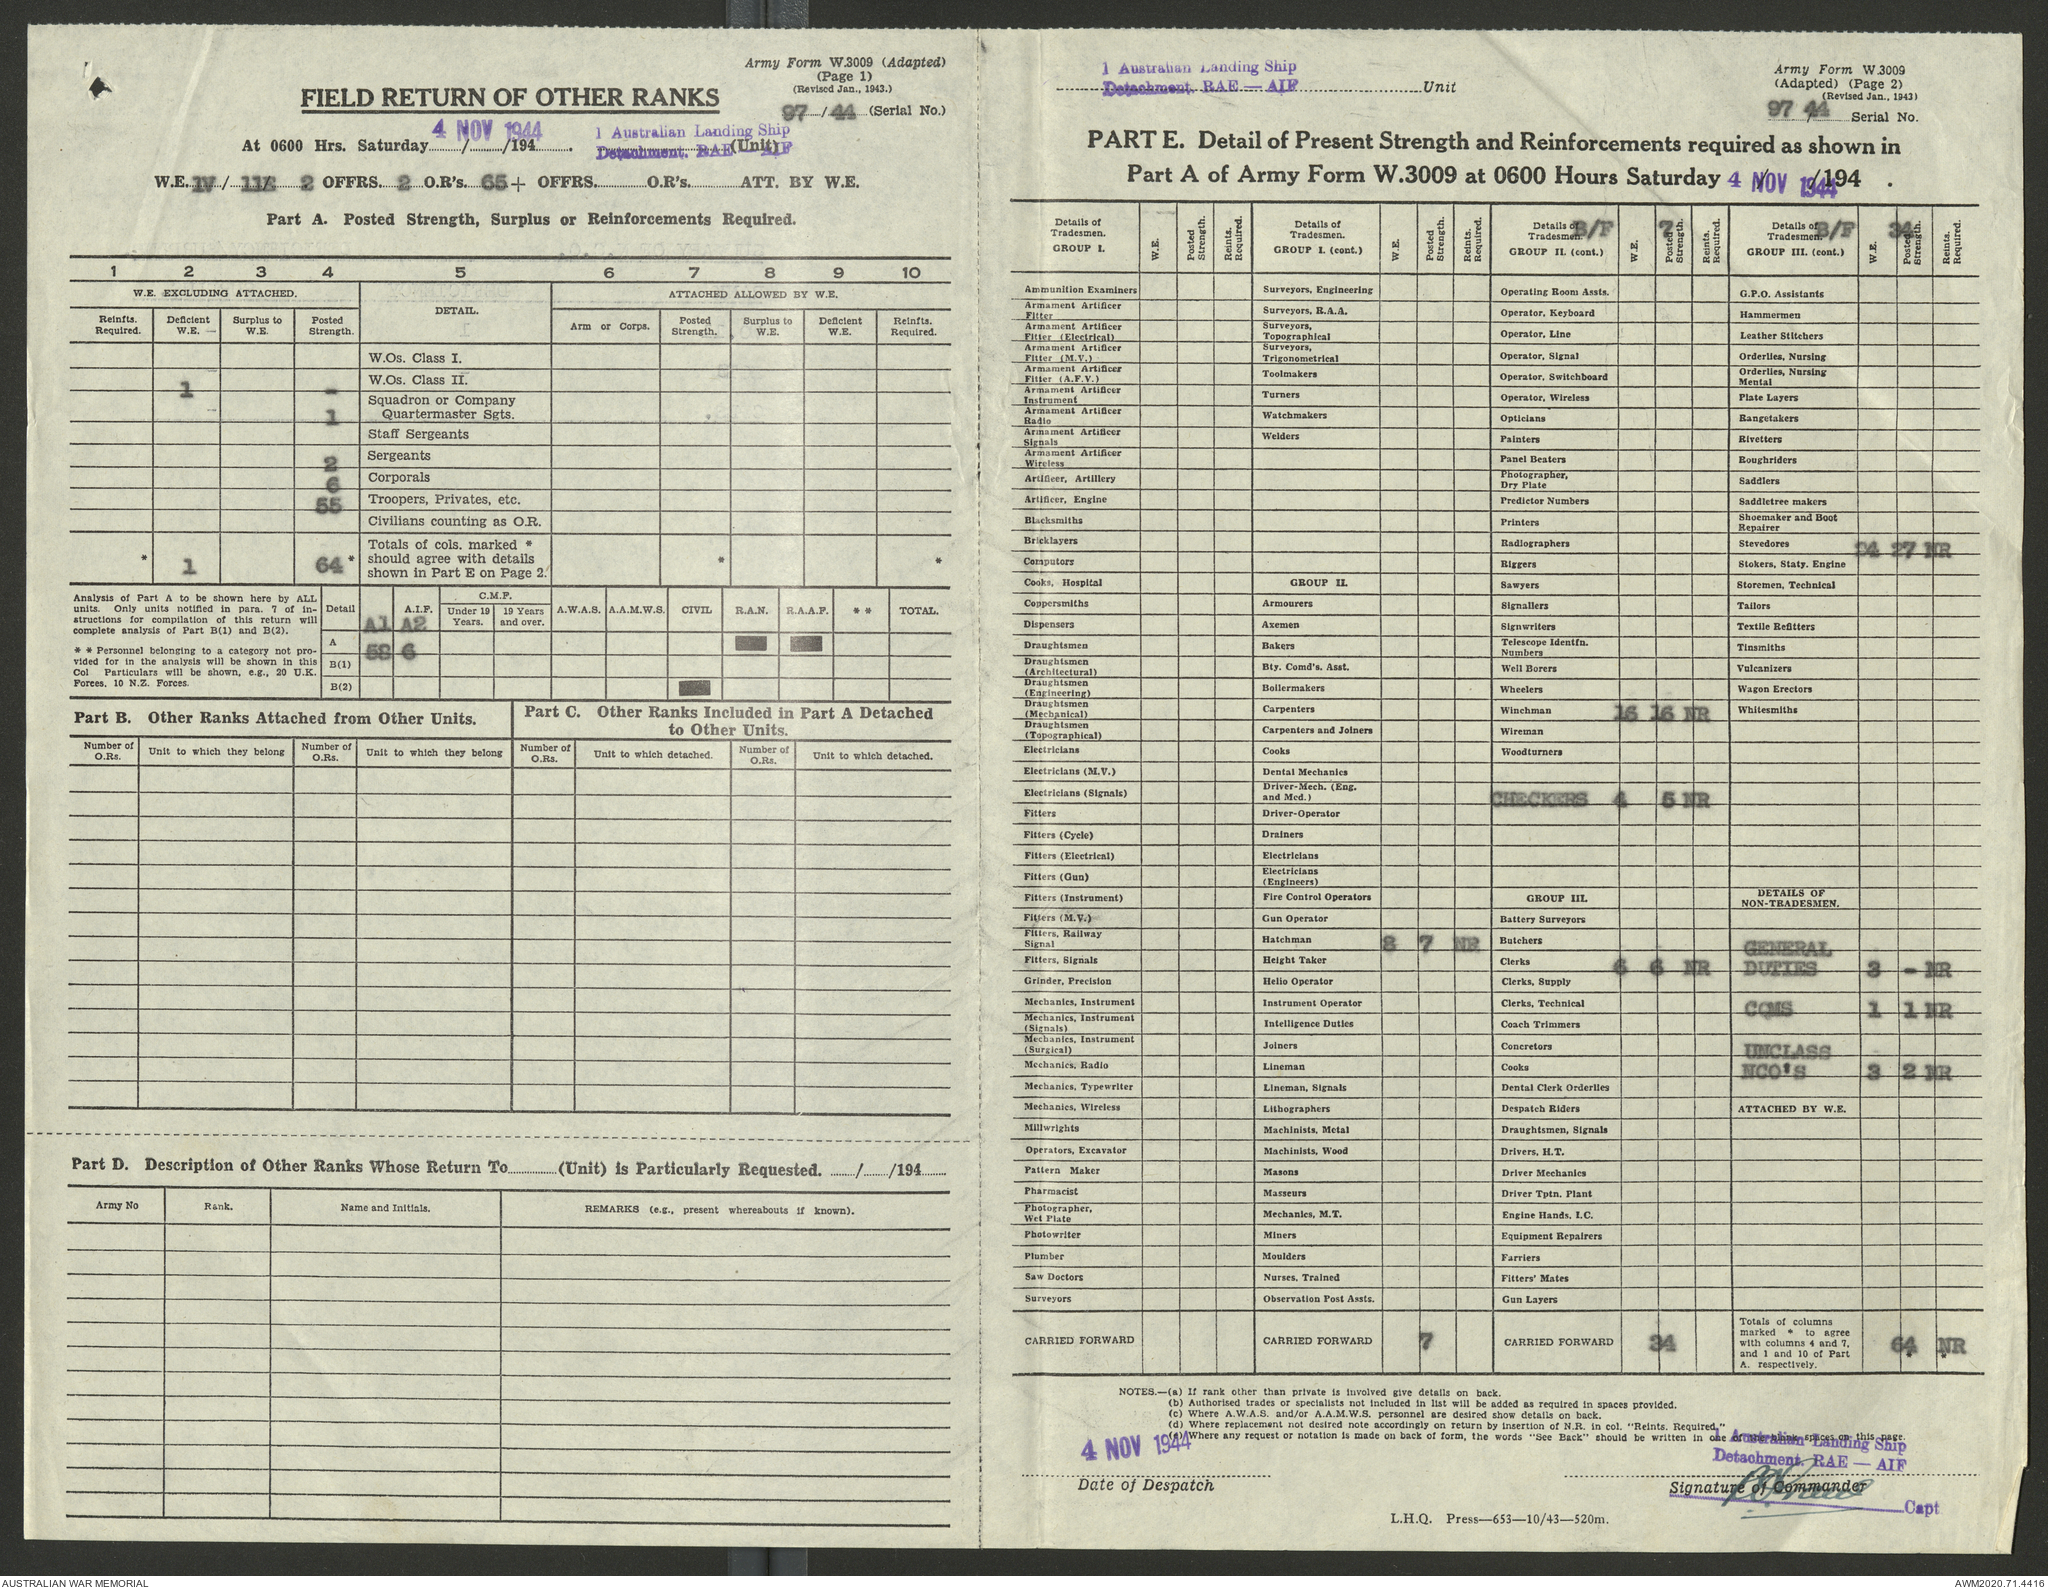 Army Form W.3009 (Adapted)
(Page 1)
(Revised Jan., 1943.)
FIELD RETURN OF OTHER RANKS
97/44 (Serial No.)
At 0600 Hrs. Saturday 4 NOV 1944 /194 . 1 Australian Landing Ship
Detachment. RAE — AIF (Unit)
W.E. IV / 11 / 2 OFFRS. 2 O.R's. 65 + OFFRS. O.R's. ATT. BY W.E.
Part A. Posted Strength, Surplus or Reinforcements Required.
1 2 3 4 5 6 7 8 9 10
W.E. EXCLUDING ATTACHED. DETAIL. ATTACHED ALLOWED BY W.E.
Reinfts. Required. Deficient W.E. Surplus to W.E. Posted Strength. Arm or Corps. Posted Strength. Surplus to W.E. Deficient W.E. Reinfts. Required.
W.Os. Class I.
1 - W.Os. Class II.
1 Squadron or Company Quartermaster Sgts.
Staff Sergeants
2 Sergeants
6 Corporals
55 Troopers, Privates, etc.
Civilians counting as O.R.
* 1 64 * Totals of cols. marked * should agree with details shown in Part E on Page 2. * *
Analysis of Part A to be shown here by ALL
units. Only units notified in para. 7 of in-
structions for compilation of this return will
complete analysis of Part B(1) and B(2).
* * Personnel belonging to a category not pro-
vided for in the analysis will be shown in this
Col Particulars will be shown, e.g., 20 U.K.
Forces, 10 N.Z. Forces.
Detail A1 A.I.F. A2 C.M.F. Under 19 Years. 19 Years and over. A.W.A.S. A.A.M.W.S. CIVIL R.A.N. R.A.A.F. * * TOTAL.
A 58 6
B(1)
B(2)
Part B. Other Ranks Attached from Other Units.
Part C. Other Ranks Included in Part A Detached
to Other Units.
Number of O.Rs. Unit to which they belong Number of O.Rs. Unit to which they belong Number of O.Rs. Unit to which detached. Number of O.Rs. Unit to which detached.
Part D. Description of Other Ranks Whose Return To (Unit) is Particularly Requested. / /194
Army No Rank. Name and Initials. REMARKS (e.g., present whereabouts if known).
1 Australian Landing Ship
Detachment. RAE — AIF Unit
Army Form W.3009
(Adapted) (Page 2)
(Revised Jan., 1943)
97 / 44 Serial No.
PART E. Detail of Present Strength and Reinforcements required as shown in
Part A of Army Form W.3009 at 0600 Hours Saturday 4 NOV 1944 /194 .
Details of Tradesmen. GROUP I. W.E. Posted Strength. Reints. Required.
Ammunition Examiners
Armament Artificer Fitter
Armament Artificer Fitter (Electrical)
Armament Artificer Fitter (M.V.)
Armament Artificer Fitter (A.F.V.)
Armament Artificer Instrument
Armament Artificer Radio
Armament Artificer Signals
Armament Artificer Wireless
Artificer, Artillery
Artificer, Engine
Blacksmiths
Bricklayers
Computors
Cooks, Hospital
Coppersmiths
Dispensers
Draughtsmen
Draughtsmen (Architectural)
Draughtsmen (Engineering)
Draughtsmen (Mechanical)
Draughtsmen (Topographical)
Electricians
Electricians (M.V.)
Electricians (Signals)
Fitters
Fitters (Cycle)
Fitters (Electrical)
Fitters (Gun)
Fitters (Instrument)
Fitters (M.V.)
Fitters, Railway Signal
Fitters, Signals
Grinder, Precision
Mechanics, Instrument
Mechanics, Instrument (Signals)
Mechanics, Instrument (Surgical)
Mechanics, Radio
Mechanics, Typewriter
Mechanics, Wireless
Millwrights
Operators, Excavator
Pattern Maker
Pharmacist
Photographer, Wet Plate
Photowriter
Plumber
Saw Doctors
Surveyors
CARRIED FORWARD
Details of Tradesmen. GROUP I. (cont.) W.E. Posted Strength Reints. Required.
Surveyors, Engineering
Surveyors, R.A.A.
Surveyors, Topographical
Surveyors, Trigonometrical
Toolmakers
Turners
Watchmakers
Welders
GROUP II.
Armourers
Axemen
Bakers
Bty. Comd's. Asst.
Boilermakers
Carpenters
Carpenters and Joiners
Cooks
Dental Mechanics
Driver-Mech. (Eng. and Med.)
Driver-Operator
Drainers
Electricians
Electricians (Engineers)
Fire Control Operators
Gun Operator
Hatchman 8 7 NR
Height Taker
Helio Operator
Instrument Operator
Intelligence Duties
Joiners
Lineman
Lineman, Signals
Lithographers
Machinists, Metal
Machinists, Wood
Masons
Masseurs
Mechanics, M.T.
Miners
Moulders
Nurses, Trained
Observation Post Assts.
CARRIED FORWARD 7
Details of Tradesmen. B/F GROUP II. (cont.) W.E. 7 Posted Strength. Reints. Required.
Operating Room Assts.
Operator, Keyboard
Operator, Line
Operator, Signal
Operator, Switchboard
Operator, Wireless
Opticians
Painters
Panel Beaters
Photographer, Dry Plate
Predictor Numbers
Printers
Radiographers
Riggers
Sawyers
Signallers
Signwriters
Telescope Identfn. Numbers
Well Borers
Wheelers
Winchman 16 16 NR
Wireman
Woodturners
CHECKERS 4 5 NR
GROUP III.
Battery Surveyors
Butchers
Clerks 6 6 NR
Clerks, Supply
Clerks, Technical
Coach Trimmers
Concretors
Cooks
Dental Clerk Orderlies
Despatch Riders
Draughtsmen, Signals
Drivers, H.T.
Driver Mechanics
Driver Tptn. Plant
Engine Hands, I.C.
Equipment Repairers
Farriers
Fitters' Mates
Gun Layers
CARRIED FORWARD 34
Details of Tradesmen. B/F GROUP III. (cont.) W.E. 34 Posted Strength. Reints. Required.
G.P.O. Assistants
Hammermen
Leather Stitchers
Orderlies, Nursing
Orderlies, Nursing Mental
Plate Layers
Rangetakers
Rivetters
Roughriders
Saddlers
Saddletree makers
Shoemaker and Boot Repairer
Stevedores 24 27 NR
Stokers, Staty. Engine
Storemen, Technical
Tailors
Textile Refitters
Tinsmiths
Vulcanizers
Wagon Erectors
Whitesmiths
DETAILS OF NON-TRADESMEN.
GENERAL
DUTIES 3 - NR
CQMS 1 1 NR
UNCLASS
NCO'S 3 2 NR
ATTACHED BY W.E.
Totals of columns marked * to agree with columns 4 and 7, and 1 and 10 of Part A. respectively. 64 * NR *
NOTES.—(a) If rank other than private is involved give details on back.
(b) Authorised trades or specialists not included in list will be added as required in spaces provided.
(c) Where A.W.A.S. and/or A.A.M.W.S. personnel are desired show details on back.
(d) Where replacement not desired note accordingly on return by insertion of N.R. in col. "Reints. Required."
(e) Where any request or notation is made on back of form, the words "See Back" should be written in one of the blank spaces on this page.
4 NOV 1944
1 Australian Landing Ship
Detachment. RAE — AIF
Date of Despatch
Signature of Commander
Capt
L.H.Q. Press—653—10/43—520m.
AUSTRALIAN WAR MEMORIAL
AWM2020.71.4416